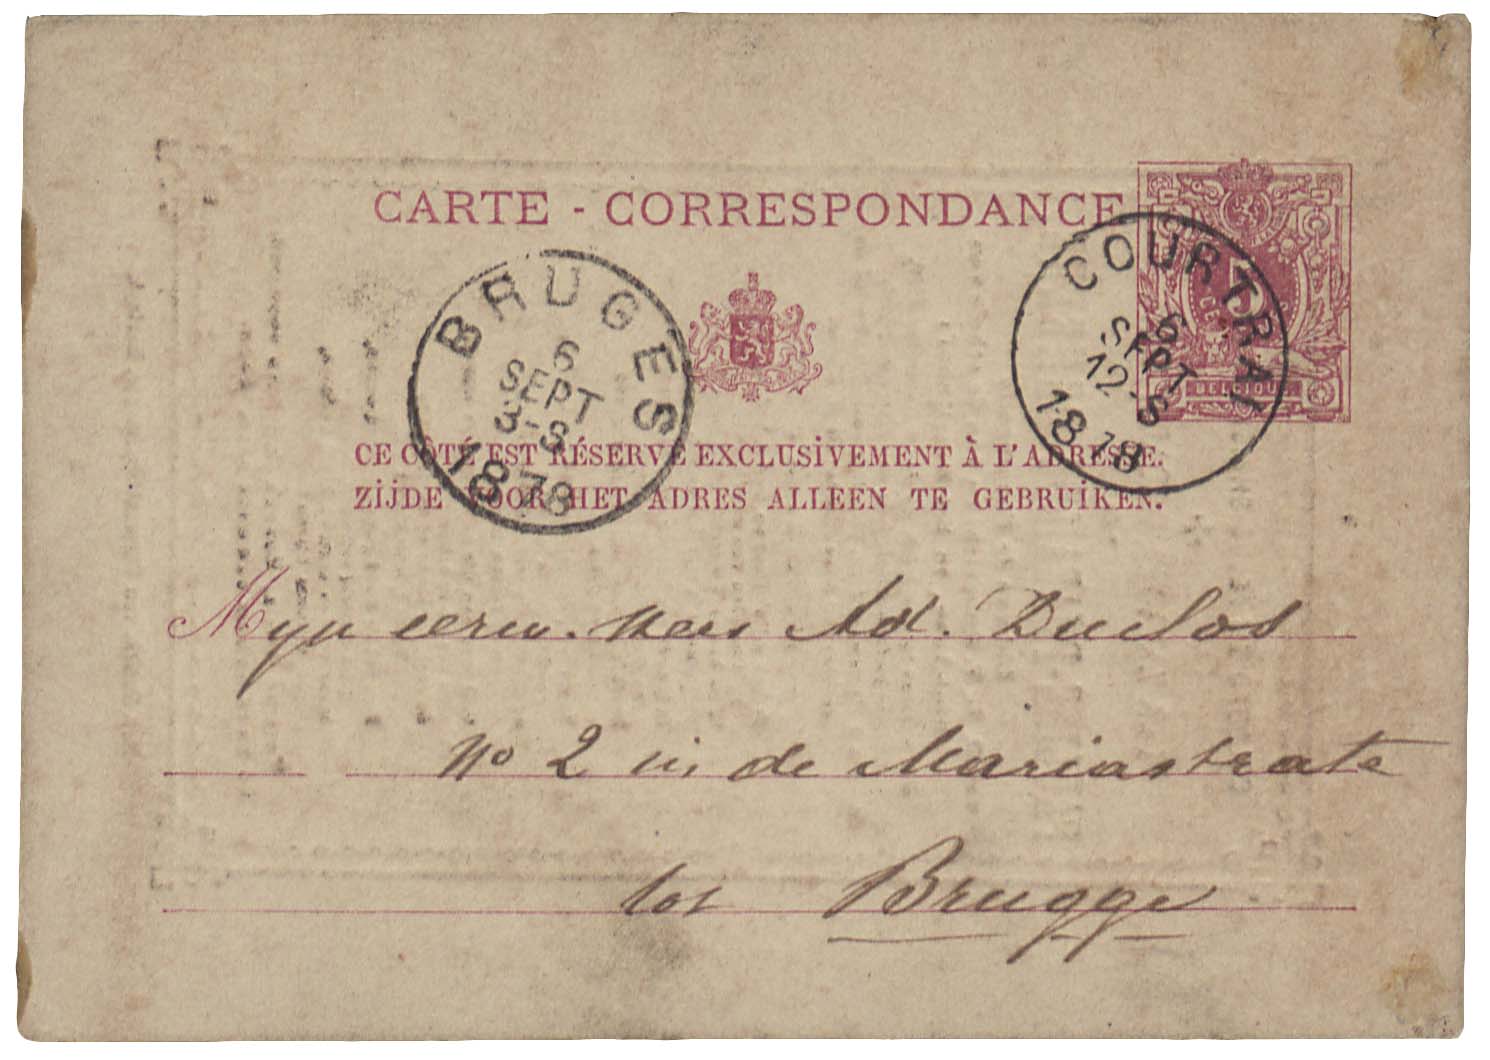 CARTE - CORRESPONDANCE
5
CES
BELGIQUE
COURTRAI
6
SEPT
12-S
1878
BRUGES
6
SEPT
3-S
1878
CE CÔTÉ EST RÉSERVÉ EXCLUSIVEMENT À L'ADRESSE.
ZIJDE VOOR HET ADRES ALLEEN TE GEBRUIKEN.
Myn eerw. Heer Ad. Duclos
No 2 in de Mariastrate
tot Brugge